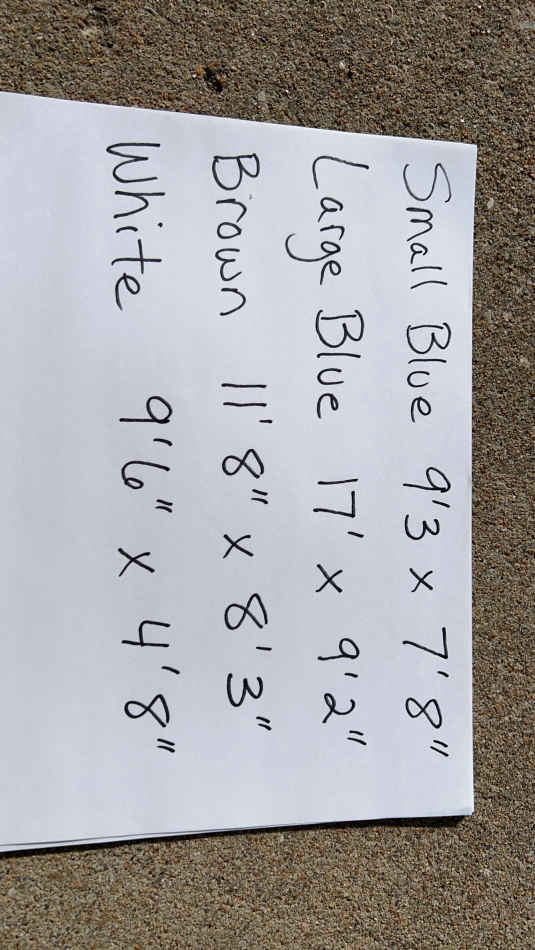 Small Blue 9'3 x 7'8"
Large Blue 17' x 9'2"
Brown 11'8" x 8'3"
White 9'6" x 4'8"